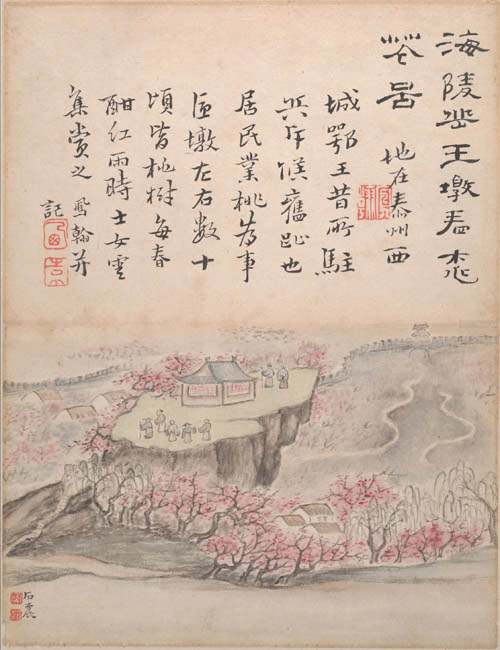 海陵岳王墩看桃
花圖
地在泰州西
城鄂王昔所駐
兵斥候舊趾也
居民業桃為事
匝墩左右數十
頃皆桃樹每春
酣紅雨時士女雲
集賞之 鳳翰并
記
石農